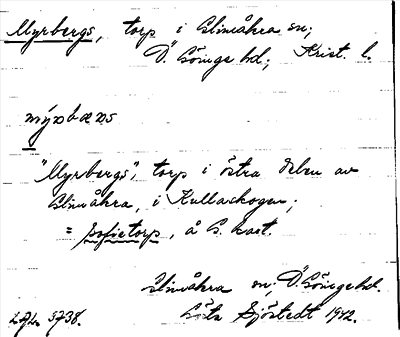 Myrbergs, torp i Glimåkra sn;
Ö. Göinge hd; Krist. l.
"Myrbergs", torp i östra delen av
Glimåkra, i Kullaskogen;
= Sofietorp, å G. kart.
Glimåkra sn; Ö. Göinge hd.
Göta Sjöstedt 1942.
3738.